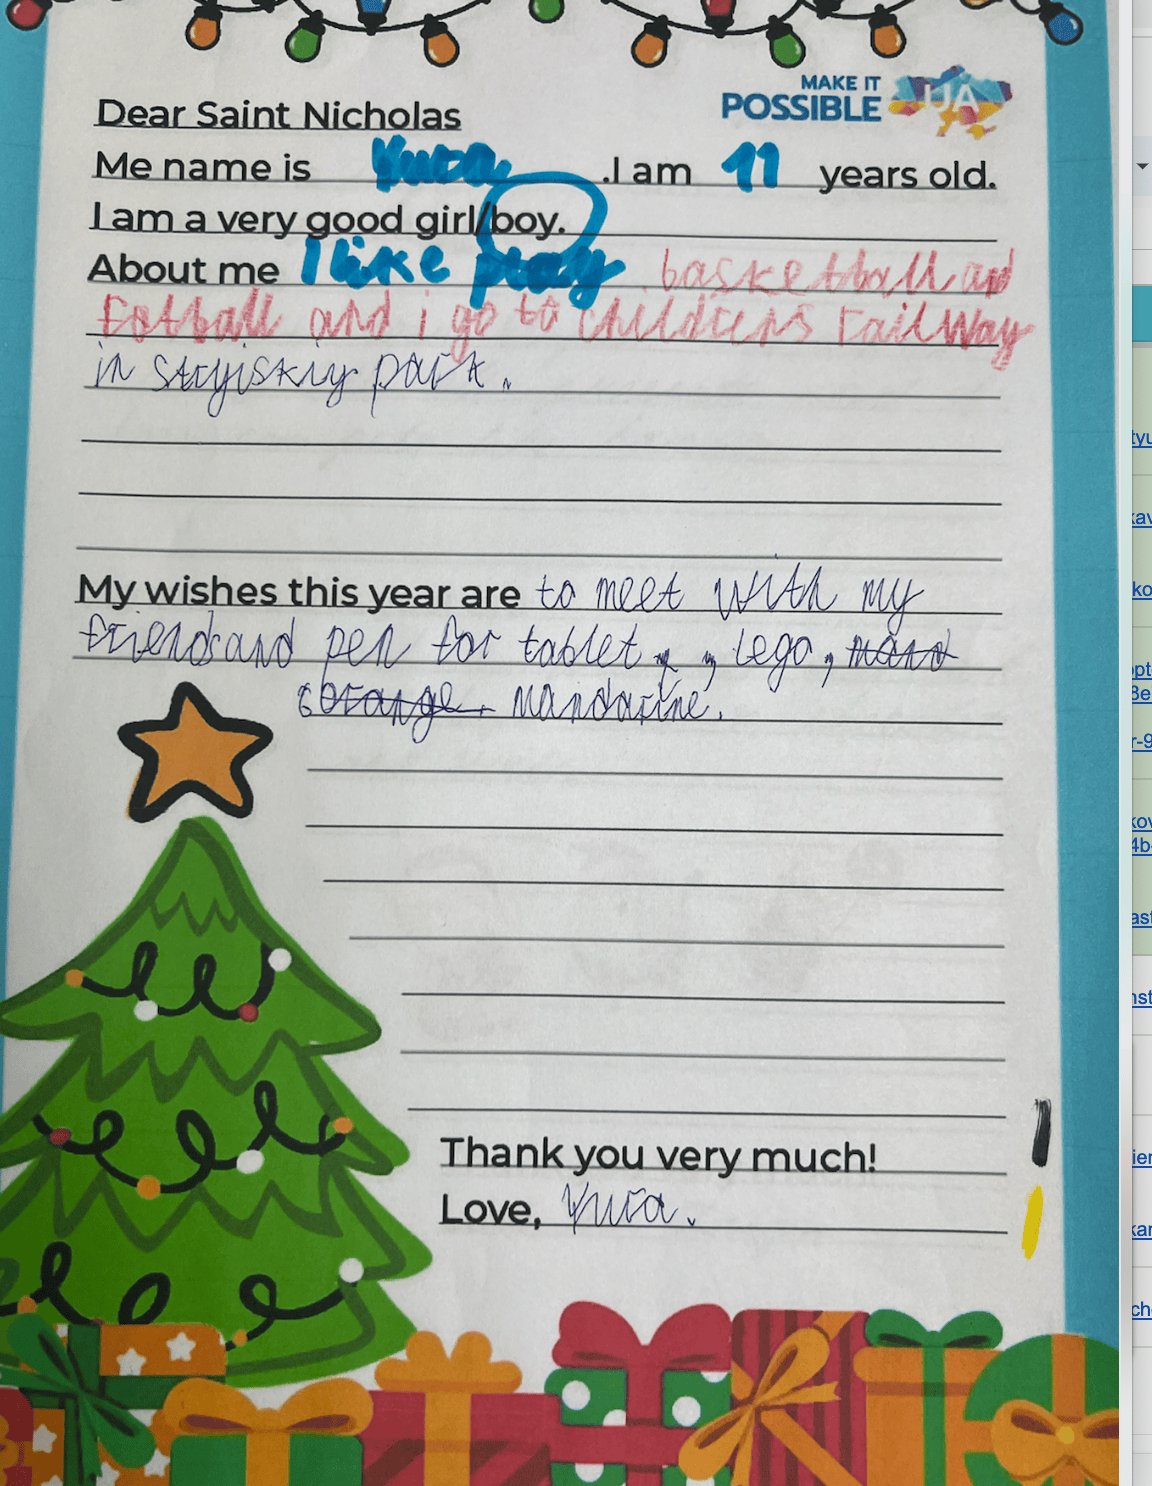 MAKE IT
POSSIBLE UA
Dear Saint Nicholas
Me name is Yura .I am 11 years old.
I am a very good girl/boy.
About me I like play basketball and
football and i go to children's railway
in stryiskiy park.
My wishes this year are to meet with my
friends and pen for tablet, , lego, mand
orange. mandarine.
Thank you very much!
Love, Yura.
tyu
kav
ko
opt
8e
r-9
kov
4b-
ast
nst
ier
kar
ch